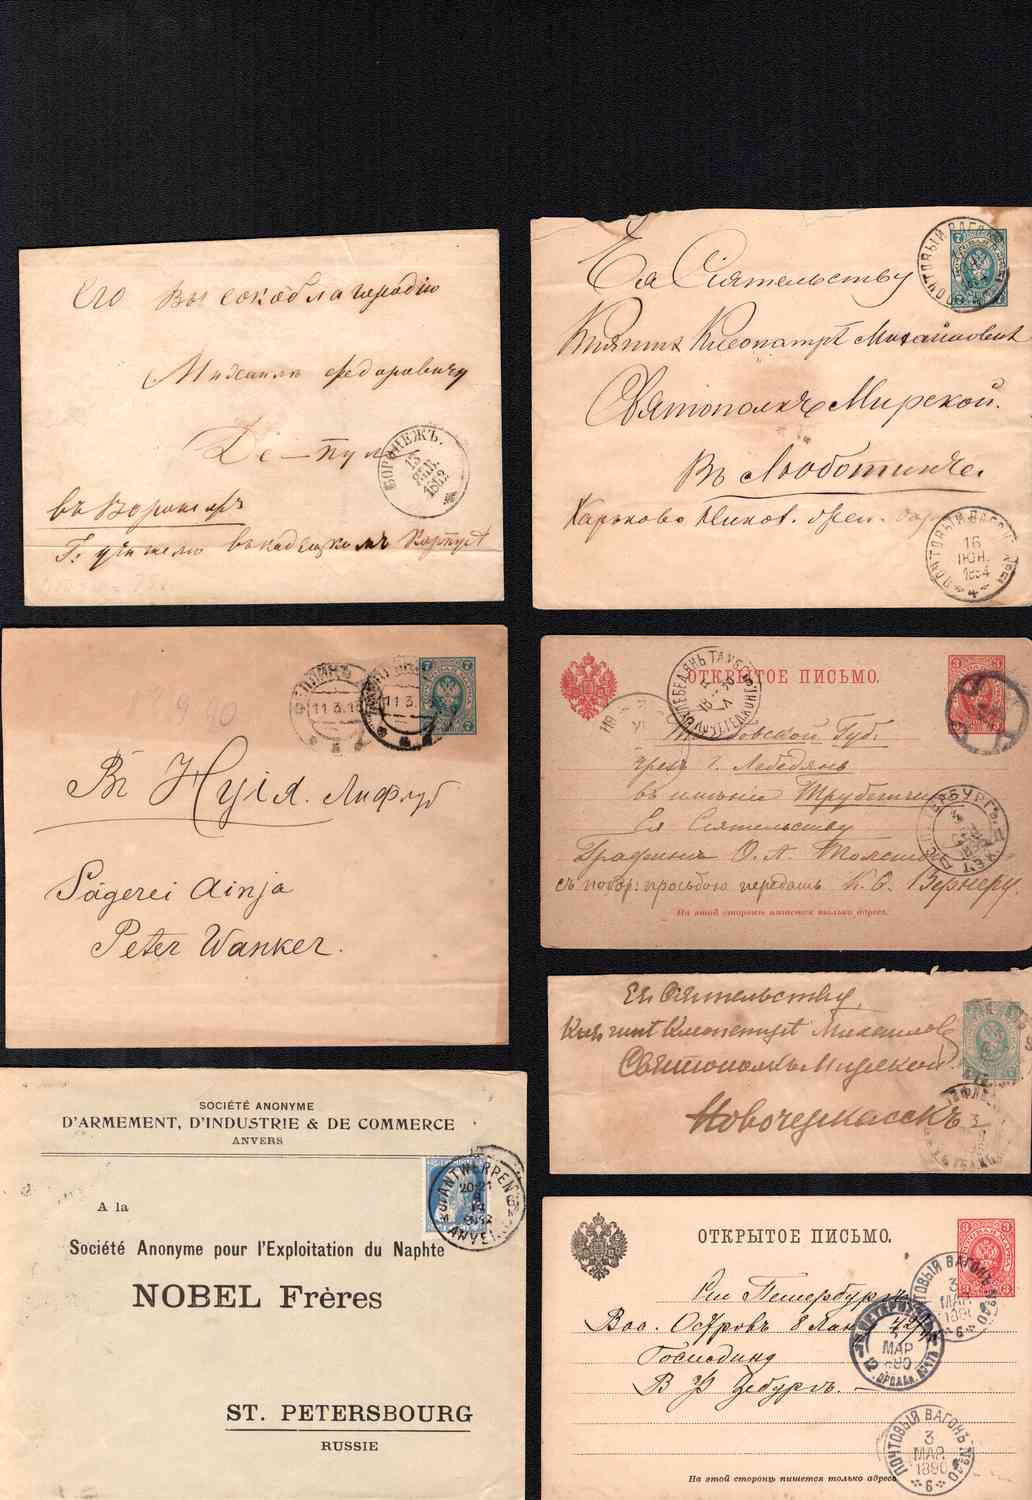 Его Высокоблагородію
Михаилъ Федоровичу
Де-Пуле
ВОРОНЕЖЪ.
13
ЯНВ.
1862
въ Воронежъ
въ кадецкомъ Корпусѣ
Ея Сіятельству
Княгинѣ Клеопатрѣ Михайловнѣ
Святополкъ Мирской.
Въ Люботинъ.
Харьково Никол.
ПОЧТОВЫЙ ВАГОНЪ
ПОЧТОВЫЙ ВАГОНЪ №
16
ІЮН.
1884
4
7
11.3.
11.3.
Въ Нуія. Лифл. губ
Sägerei Ainja
Peter Wanker.
3
ОТКРЫТОЕ ПИСЬМО.
ЛЕБЕДЯНЬ ТАМБ.
Тамбовской Губ.
чрезъ г. Лебедянь
въ имѣніи
Ея Сіятельству
Графинѣ О. А. Толстой
съ покор: просьбою передать К. Ѳ. Вернеру.
С.ПЕТЕРБУРГЪ
На этой сторонѣ пишется только адресъ.
Ея Сіятельству,
Княгинѣ Клеопатрѣ Михайлов
Святополкъ Мирской
Новочеркасскъ
3
SOCIÉTÉ ANONYME
D'ARMEMENT, D'INDUSTRIE & DE COMMERCE
ANVERS
ANTWERPEN
20-21
ANVERS
A la
Société Anonyme pour l'Exploitation du Naphte
NOBEL Frères
ST. PETERSBOURG
RUSSIE
3
ОТКРЫТОЕ ПИСЬМО.
ПОЧТОВЫЙ ВАГОНЪ
3
МАР.
1890
6
Петербургъ
Вас. Островъ 8 Лин
Господину
В Ф Цебургъ.
МАР
1890
ПОЧТОВЫЙ ВАГОНЪ №
3
МАР.
1890
6
На этой сторонѣ пишется только адресъ